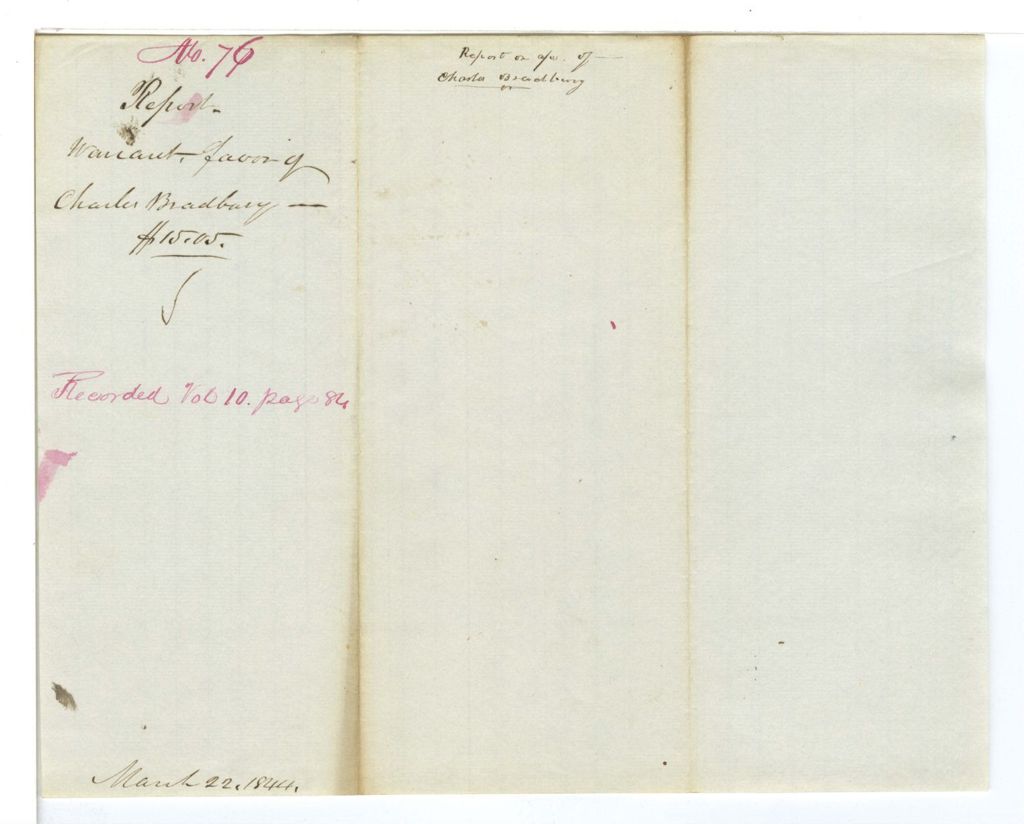 No. 76
Report.
Warrant, favor of
Charles Bradbury —
$15.05.
Recorded Vol 10. page 84
March 22, 1844.
Report on a/c. of —
Charles Bradbury